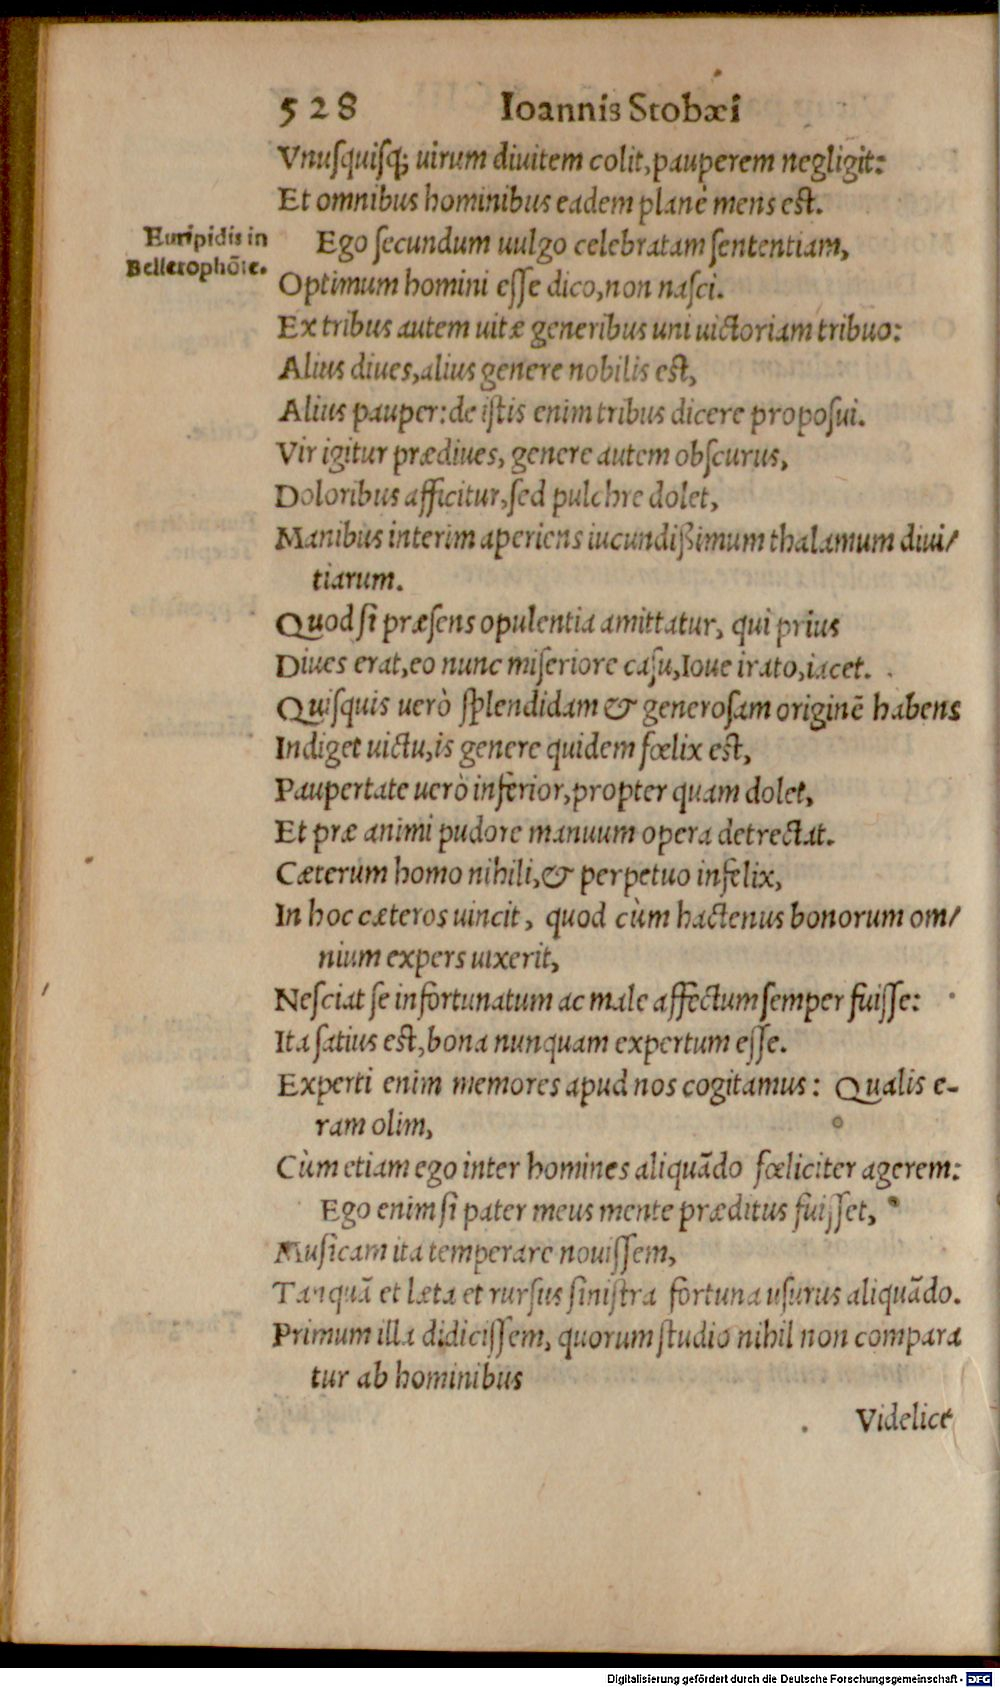 528 Ioannis Stobæi
Vnuſquiſq; uirum diuitem colit, pauperem negligit:
Et omnibus hominibus eadem planè mens est.
Euripidis in
Bellerophōte.
Ego ſecundum uulgo celebratam ſententiam,
Optimum homini eſſe dico, non naſci.
Ex tribus autem uitæ generibus uni uictoriam tribuo:
Alius diues, alius genere nobilis est,
Alius pauper: de iſtis enim tribus dicere propoſui.
Vir igitur prædiues, genere autem obſcurus,
Doloribus afficitur, ſed pulchre dolet,
Manibus interim aperiens iucundißimum thalamum diui/
tiarum.
Quod ſi præſens opulentia amittatur, qui prius
Diues erat, eo nunc miſeriore caſu, Ioue irato, iacet.
Quiſquis uerò ſplendidam & generoſam originē habens
Indiget uictu, is genere quidem fœlix est,
Paupertate uerò inferior, propter quam dolet,
Et præ animi pudore manuum opera detrectat.
Cæterum homo nihili, & perpetuo infelix,
In hoc cæteros uincit, quod cùm hactenus bonorum om/
nium expers uixerit,
Neſciat ſe infortunatum ac male affectum ſemper fuiſſe:
Ita ſatius est, bona nunquam expertum eſſe.
Experti enim memores apud nos cogitamus: Qualis e-
ram olim,
Cùm etiam ego inter homines aliquādo fœliciter agerem:
Ego enim ſi pater meus mente præditus fuiſſet,
Muſicam ita temperare nouiſſem,
Tanquā et læta et rurſus ſiniſtra fortuna uſurus aliquādo.
Primum illa didiciſſem, quorum ſtudio nihil non compara
tur ab hominibus
Videlicet
Digitalisierung gefördert durch die Deutsche Forschungsgemeinschaft - DFG